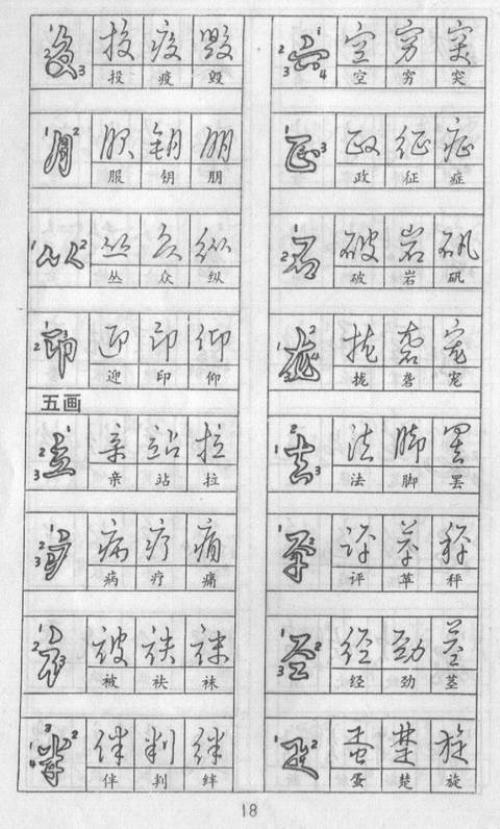 投 疫 毁
投 疫 毁
服 钥 朋
服 钥 朋
丛 众 纵
丛 众 纵
迎 印 仰
迎 印 仰
五画
亲 站 拉
亲 站 拉
病 疗 痛
病 疗 痛
被 袄 袜
被 袄 袜
伴 判 绊
伴 判 绊
空 穷 突
空 穷 突
政 征 症
政 征 症
破 岩 矾
破 岩 矾
拢 砻 宠
拢 砻 宠
法 脚 罢
法 脚 罢
评 苹 秤
评 苹 秤
经 劲 茎
经 劲 茎
蛋 楚 旋
蛋 楚 旋
18